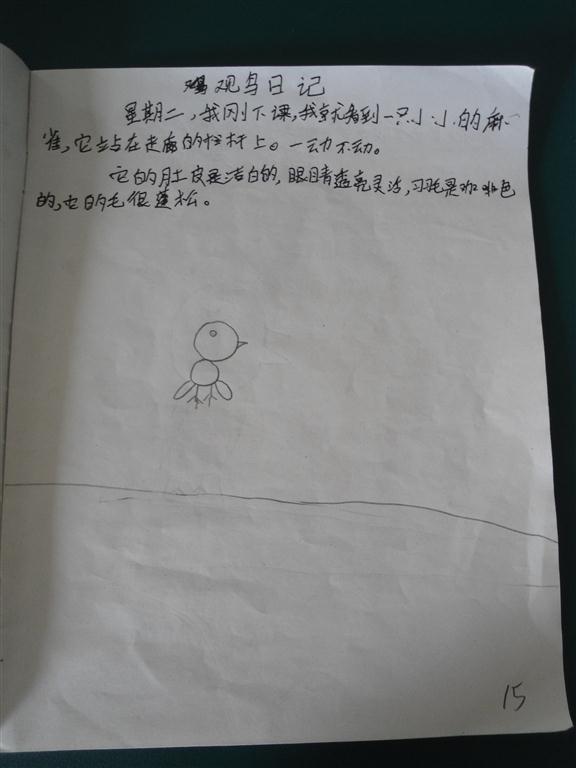 观鸟日记
星期二，我刚下课，我就看到一只小小的麻
雀，它站在走廊的栏杆上。一动不动。
它的肚皮是洁白的，眼睛透亮灵活，羽毛是咖啡色
的，它的毛很蓬松。
15